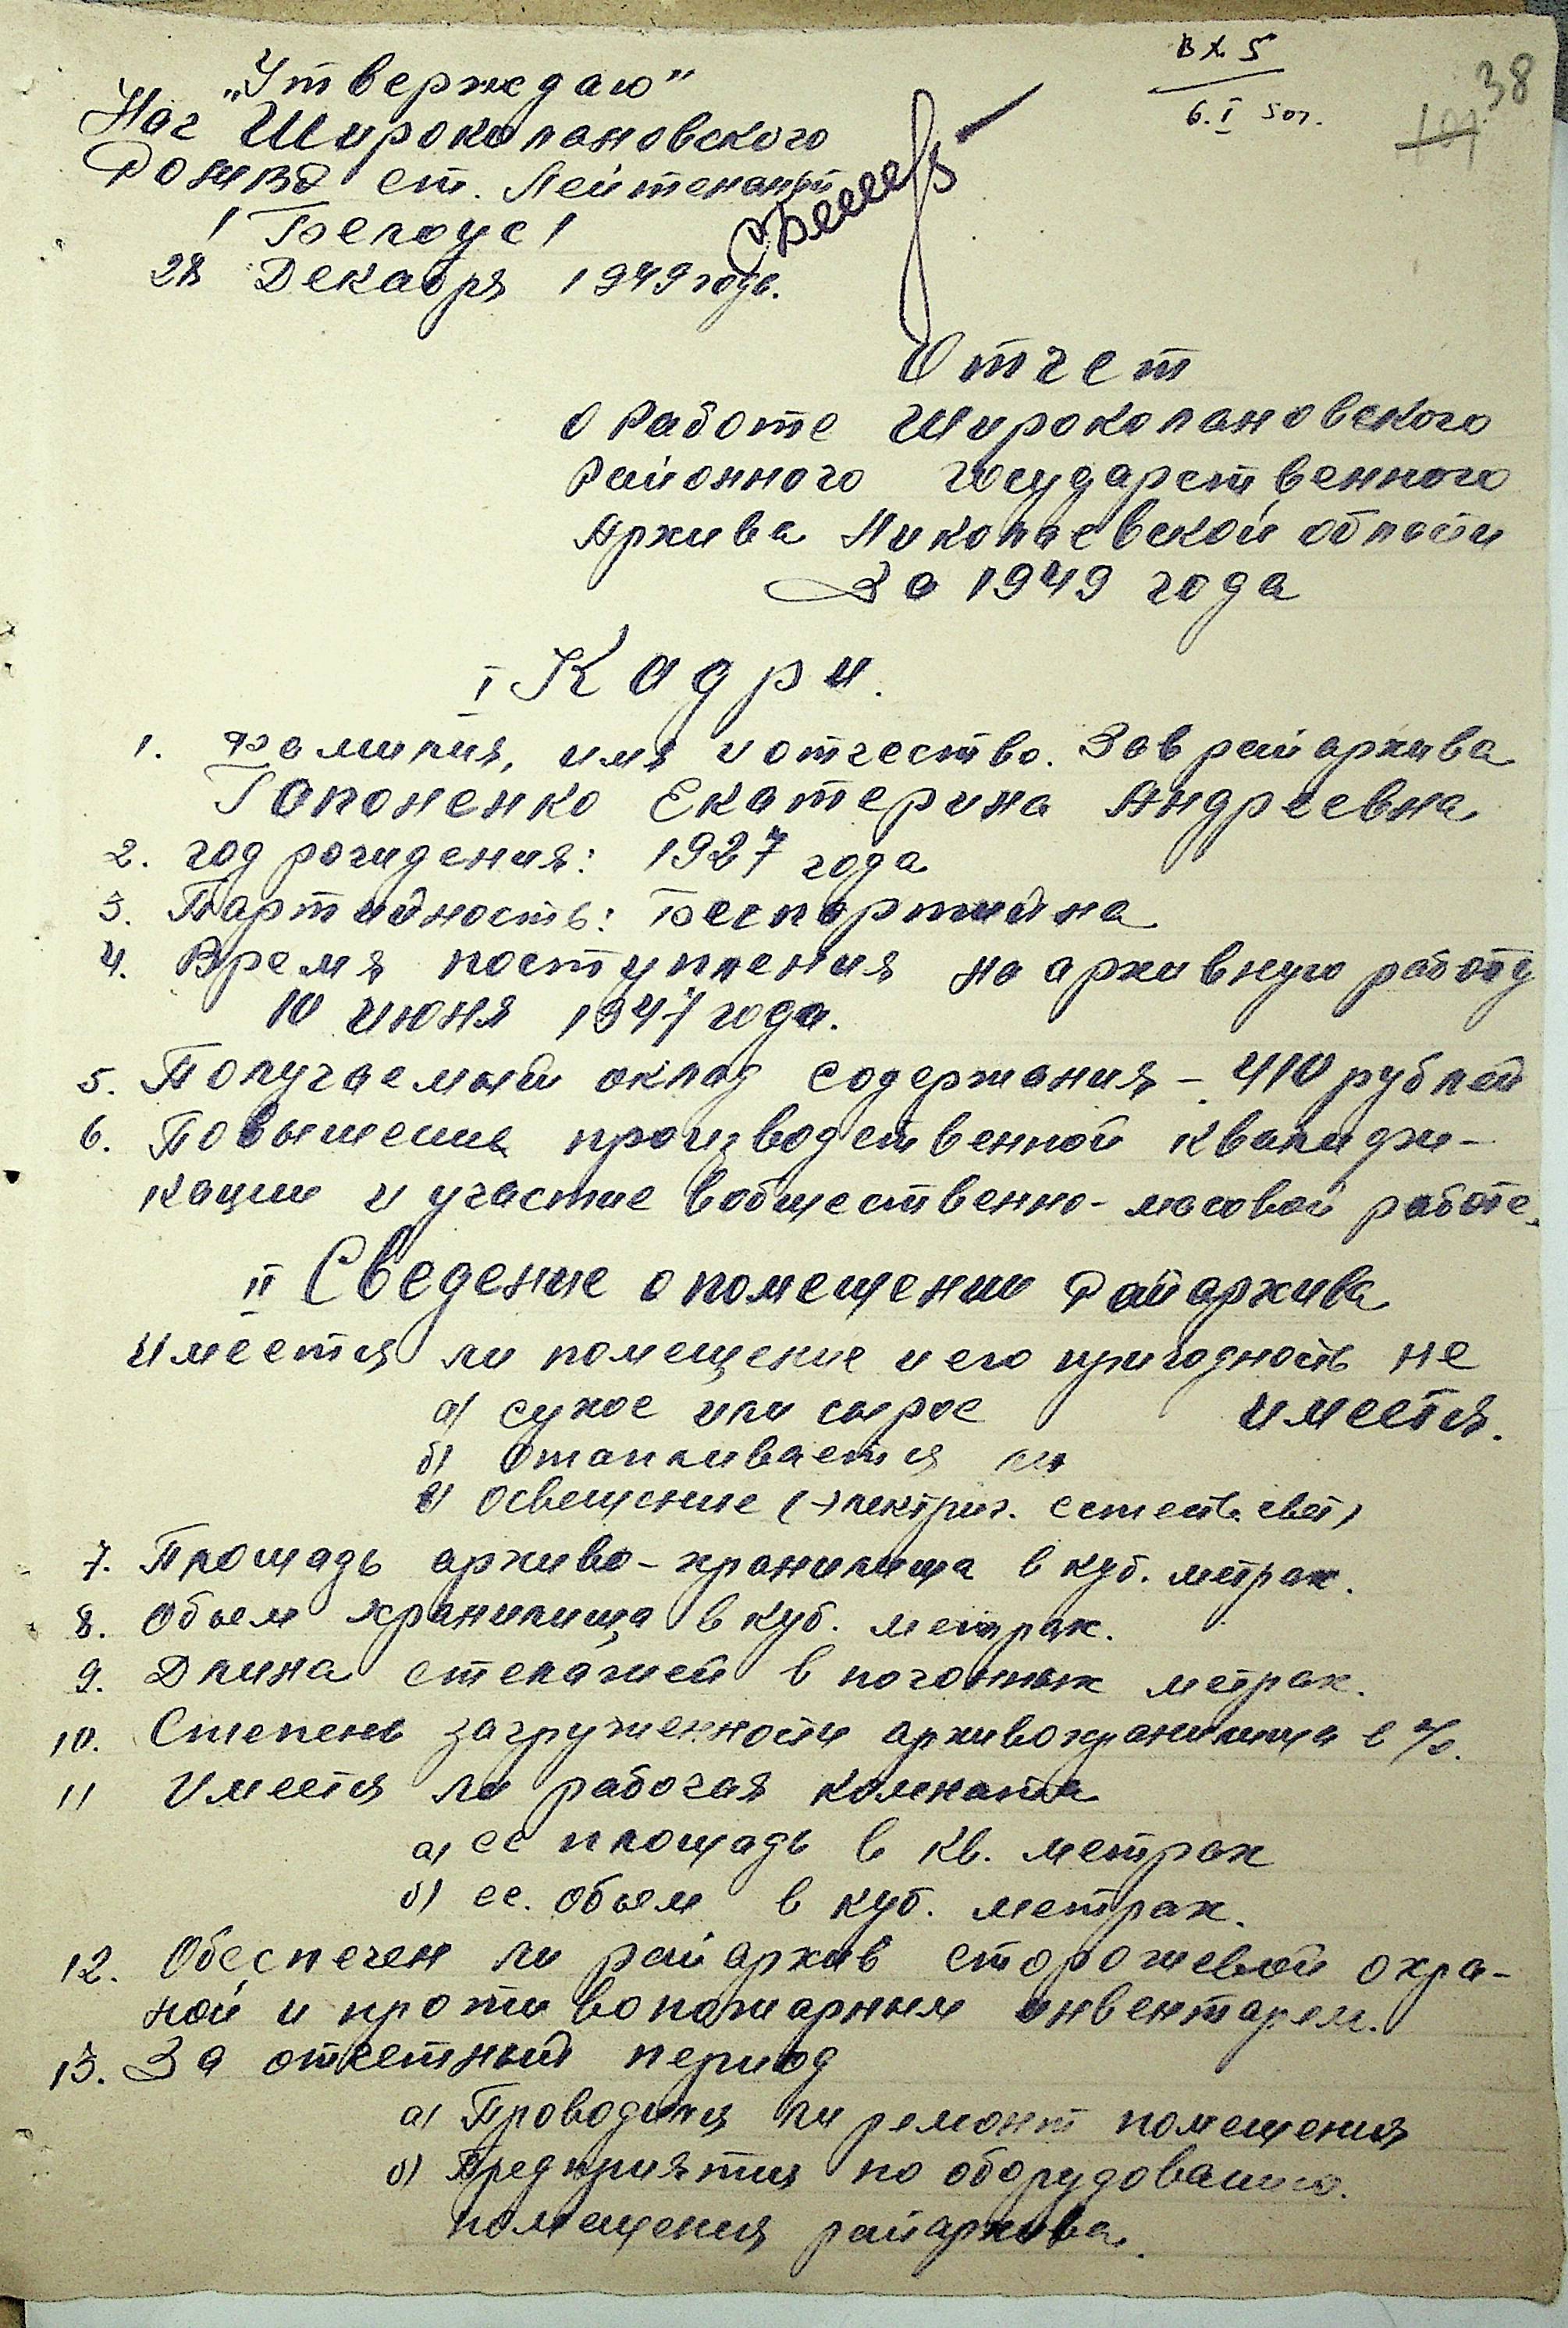 Вх 5
6.I 50г.
38
„Утверждаю"
Нач Широколановского
РОМВД ст. Лейтенант
/Белоус/
28 Декабря 1949 года.
Отчет
о Работе Широколановского
Районного государственного
Архива Николаевской области
За 1949 года
I Кадри.
1. Фамилия, имя и отчество. Зав райархива
Гапоненко Екатерина Андреевна
2. год рождения: 1927 года
3. Партийность: Беспартийна
4. Время поступления на архивную работу
10 июня 1947 года.
5. Получаемый оклад содержания – 410 рублей
6. Повышение производственной квалифи-
кации и участие в общественно-масовой работе.
II Сведение о помещении Райархива
Имеется ли помещение и его пригодность не
имеется.
а) сухое или сырое
б) отапливается ли
в) освещение (электрич. естеств. свет)
7. Площадь архиво-хранилища в куб. метрах.
8. Обьем хранилища в куб. метрах.
9. Длина стелажей в погонных метрах.
10. Степень загруженности архивохранилища в %.
11 Имеется ли рабочая комната
а) ее площадь в кв. метрах
б) ее. обьем в куб. метрах.
12. Обеспечен ли райархив сторожевой охра-
ной и противопожарным инвентарем.
13. За отчетный период
а) Проводился ли ремонт помещения
б) Предприятия по оборудованию.
помещения райархива.